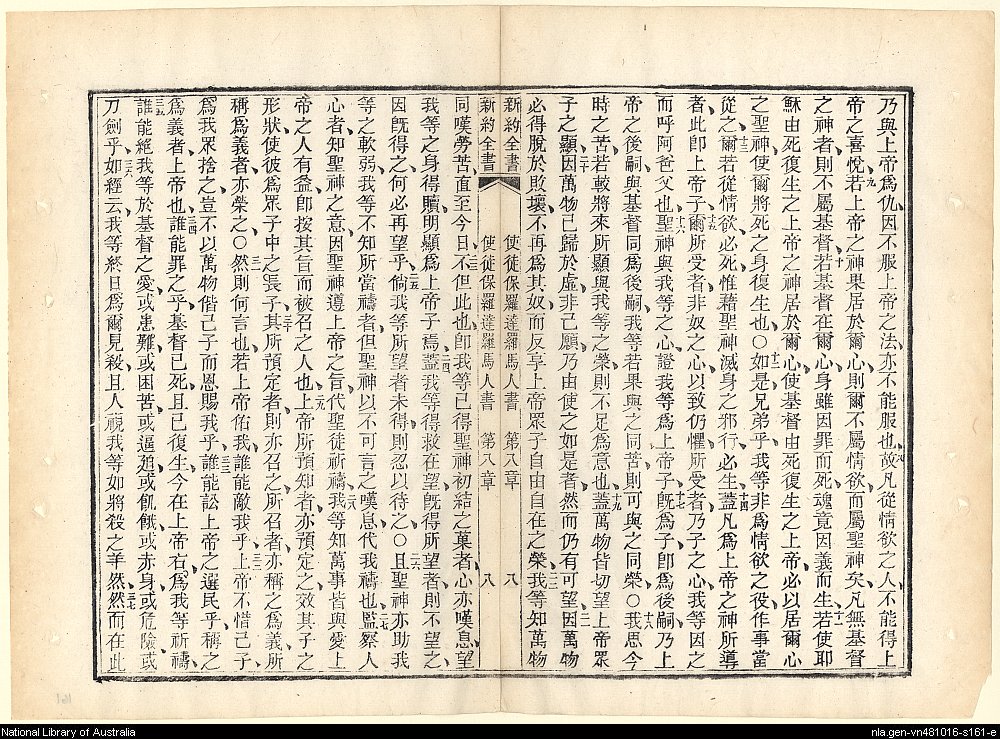 乃與上帝爲仇因不服上帝之法亦不能服也八故凡從情欲之人不能得上
帝之喜悅九若上帝之神果居於爾心則爾不屬情欲而屬聖神矣凡無基督
之神者則不屬基督十若基督在爾心身雖因罪而死魂竟因義而生十一若使耶
穌由死復生之上帝之神居於爾心使基督由死復生之上帝必以居爾心
之聖神使爾將死之身復生也〇十二如是兄弟乎我等非爲情欲之役作事當
從之十三爾若從情欲必死惟藉聖神滅身之邪行必生十四蓋凡爲上帝之神所導
者此卽上帝子十五爾所受者非奴之心以致仍懼所受者乃子之心我等因之
而呼阿爸父也十六聖神與我等之心證我等爲上帝子十七旣爲子卽爲後嗣乃上
帝之後嗣與基督同爲後嗣我等若果與之同苦則可與之同榮〇十八我思今
時之苦若較將來所顯與我等之榮則不足爲意也十九蓋萬物皆切望上帝眾
子之顯二十因萬物已歸於虛非己願乃由使之如是者然而仍有可望二一因萬物
必得脫於敗壞不再爲其奴而反享上帝眾子自由自在之榮二二我等知萬物
新約全書 使徒保羅達羅馬人書 第八章 八
新約全書 使徒保羅達羅馬人書 第八章 八
同嘆勞苦直至今日二三不但此也卽我等已得聖神初結之菓者心亦嘆息望
我等之身得贖明顯爲上帝子焉二四蓋我等得救在望旣得所望者則不望之
因旣得之何必再望乎二五倘我等所望者未得則忍以待之〇二六且聖神亦助我
等之軟弱我等不知所當禱者但聖神以不可言之嘆息代我禱也二七監察人
心者知聖神之意因聖神遵上帝之旨代聖徒祈禱二八我等知萬事皆與愛上
帝之人有益卽按其旨而被召之人也二九上帝所預知者亦預定之效其子之
形狀使彼爲眾子中之長子三十其所預定者則亦召之所召者亦稱之爲義所
稱爲義者亦榮之〇三一然則何言也若上帝佑我誰能敵我乎三二上帝不惜己子
爲我眾捨之豈不以萬物偕己子而恩賜我乎三三誰能訟上帝之選民乎稱之
爲義者上帝也三四誰能罪之乎基督已死且已復生今在上帝右爲我等祈禱
三五誰能絕我等於基督之愛或患難或困苦或逼廹或飢餓或赤身或危險或
刀劍乎三六如經云我等終日爲爾見殺且人視我等如將殺之羊然三七然而在此
161
National Library of Australia
nla.gen-vn481016-s161-e